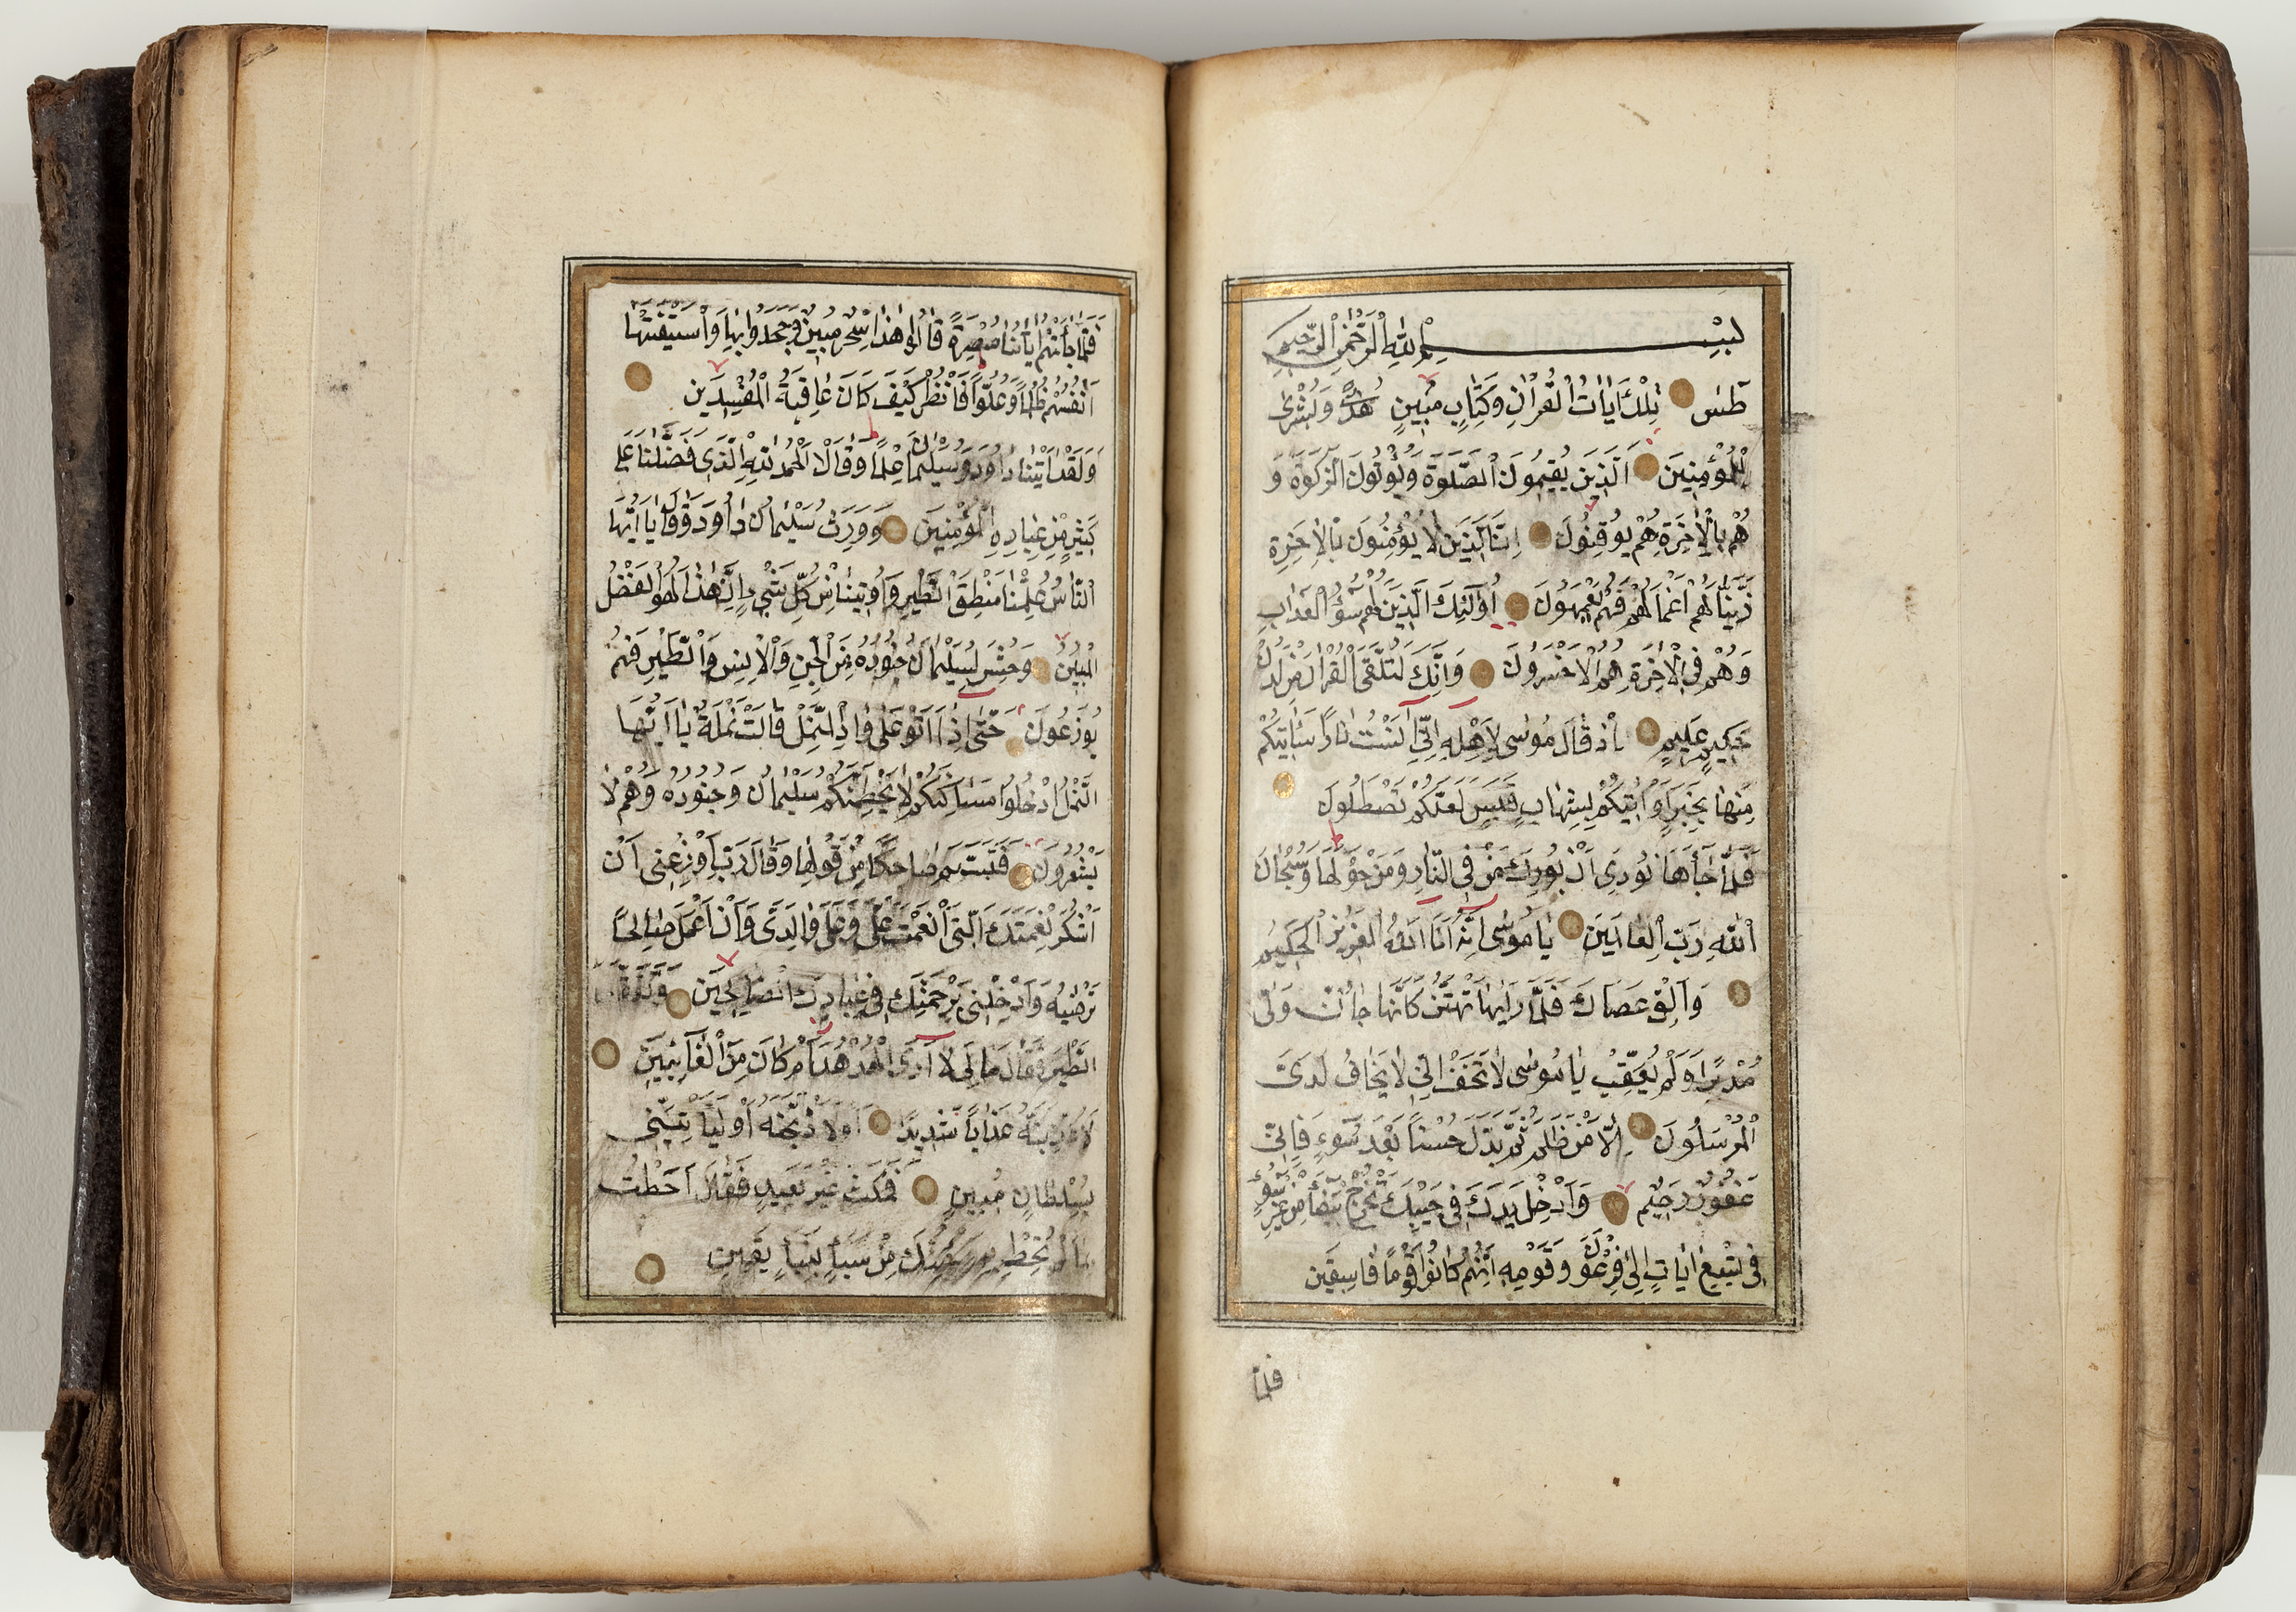 بِسْمِ اللهِ الرَّحْمٰنِ الرَّحِيمِ
طٰسۤ تِلْكَ اٰيَاتُ الْقُرْاٰنِ وَكِتَابٍ مُبِينٍ هُدًى وَبُشْرٰى
لِلْمُؤْمِنِينَ اَلَّذِينَ يُقِيمُونَ الصَّلٰوةَ وَيُؤْتُونَ الزَّكٰوةَ وَ
هُمْ بِالْاٰخِرَةِ هُمْ يُوقِنُونَ اِنَّ الَّذِينَ لَا يُؤْمِنُونَ بِالْاٰخِرَةِ
زَيَّنَّا لَهُمْ اَعْمَالَهُمْ فَهُمْ يَعْمَهُونَ اُولٰئِكَ الَّذِينَ لَهُمْ سُوۤءُ الْعَذَابِ
وَهُمْ فِي الْاٰخِرَةِ هُمُ الْاَخْسَرُونَ وَاِنَّكَ لَتُلَقَّى الْقُرْاٰنَ مِنْ لَدُنْ
حَكِيمٍ عَلِيمٍ اِذْ قَالَ مُوسٰى لِاَهْلِهِ اِنِّي اٰنَسْتُ نَارًا سَاٰتِيكُمْ
مِنْهَا بِخَبَرٍ اَوْ اٰتِيكُمْ بِشِهَابٍ قَبَسٍ لَعَلَّكُمْ تَصْطَلُونَ
فَلَمَّا جَاۤءَهَا نُودِيَ اَنْ بُورِكَ مَنْ فِي النَّارِ وَمَنْ حَوْلَهَا وَسُبْحَانَ
اللهِ رَبِّ الْعَالَمِينَ يَا مُوسٰى اِنَّهُ اَنَا اللهُ الْعَزِيزُ الْحَكِيمُ
وَاَلْقِ عَصَاكَ فَلَمَّا رَاٰيهَا تَهْتَزُّ كَاَنَّهَا جَاۤنٌّ وَلّٰى
مُدْبِرًا وَلَمْ يُعَقِّبْ يَا مُوسٰى لَا تَخَفْ اِنِّي لَا يَخَافُ لَدَيَّ
الْمُرْسَلُونَ اِلَّا مَنْ ظَلَمَ ثُمَّ بَدَّلَ حُسْنًا بَعْدَ سُوۤءٍ فَاِنِّي
غَفُورٌ رَحِيمٌ وَاَدْخِلْ يَدَكَ فِي جَيْبِكَ تَخْرُجْ بَيْضَاۤءَ مِنْ غَيْرِ سُوۤءٍ
فِي تِسْعِ اٰيَاتٍ اِلٰى فِرْعَوْنَ وَقَوْمِهِ اِنَّهُمْ كَانُوا قَوْمًا فَاسِقِينَ
فلما
فَلَمَّا جَاۤءَتْهُمْ اٰيَاتُنَا مُبْصِرَةً قَالُوا هٰذَا سِحْرٌ مُبِينٌ وَجَحَدُوا بِهَا وَاسْتَيْقَنَتْهَا
اَنْفُسُهُمْ ظُلْمًا وَعُلُوًّا فَانْظُرْ كَيْفَ كَانَ عَاقِبَةُ الْمُفْسِدِينَ
وَلَقَدْ اٰتَيْنَا دَاوُدَ وَسُلَيْمَانَ عِلْمًا وَقَالَا الْحَمْدُ لِلهِ الَّذِي فَضَّلَنَا عَلٰى
كَثِيرٍ مِنْ عِبَادِهِ الْمُؤْمِنِينَ وَوَرِثَ سُلَيْمَانُ دَاوُدَ وَقَالَ يَا اَيُّهَا
النَّاسُ عُلِّمْنَا مَنْطِقَ الطَّيْرِ وَاُوتِينَا مِنْ كُلِّ شَيْءٍ اِنَّ هٰذَا لَهُوَ الْفَضْلُ
الْمُبِينُ وَحُشِرَ لِسُلَيْمَانَ جُنُودُهُ مِنَ الْجِنِّ وَالْاِنْسِ وَالطَّيْرِ فَهُمْ
يُوزَعُونَ حَتّٰى اِذَا اَتَوْا عَلٰى وَادِ النَّمْلِ قَالَتْ نَمْلَةٌ يَا اَيُّهَا
النَّمْلُ ادْخُلُوا مَسَاكِنَكُمْ لَا يَحْطِمَنَّكُمْ سُلَيْمَانُ وَجُنُودُهُ وَهُمْ لَا
يَشْعُرُونَ فَتَبَسَّمَ ضَاحِكًا مِنْ قَوْلِهَا وَقَالَ رَبِّ اَوْزِعْنِي اَنْ
اَشْكُرَ نِعْمَتَكَ الَّتِي اَنْعَمْتَ عَلَيَّ وَعَلٰى وَالِدَيَّ وَاَنْ اَعْمَلَ صَالِحًا
تَرْضٰيهُ وَاَدْخِلْنِي بِرَحْمَتِكَ فِي عِبَادِكَ الصَّالِحِينَ وَتَفَقَّدَ
الطَّيْرَ فَقَالَ مَا لِيَ لَا اَرَى الْهُدْهُدَ اَمْ كَانَ مِنَ الْغَاۤئِبِينَ
لَاُعَذِّبَنَّهُ عَذَابًا شَدِيدًا اَوْ لَاَذْبَحَنَّهُ اَوْ لَيَأْتِيَنِّي
بِسُلْطَانٍ مُبِينٍ فَمَكَثَ غَيْرَ بَعِيدٍ فَقَالَ اَحَطْتُ
بِمَا لَمْ تُحِطْ بِهِ وَجِئْتُكَ مِنْ سَبَاٍ بِنَبَاٍ يَقِينٍ